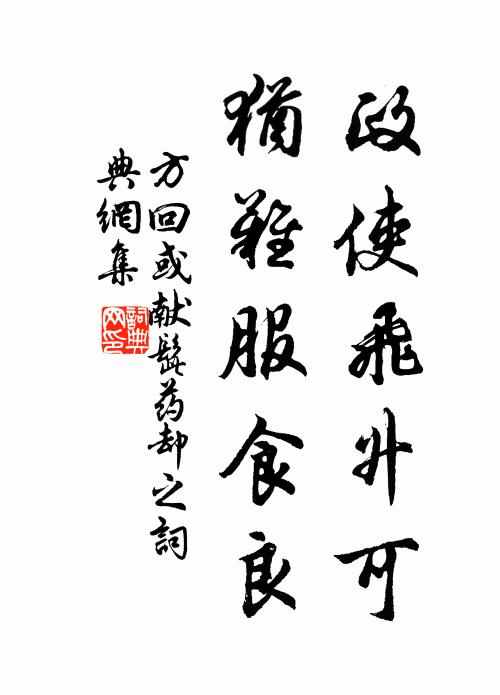 政使飛升可
猶難服食良
方回或献髭药却之詞
典網集
詞典
网印